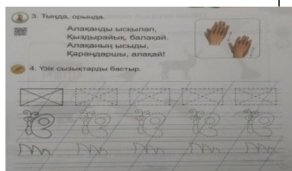 3. Тыңда, орында.
Алақанды ысқылап,
Қыздырайық, балақай.
Алақаның ысыды,
Қарандаршы, алақай!
4. Үзік сызықтарды бастыр.